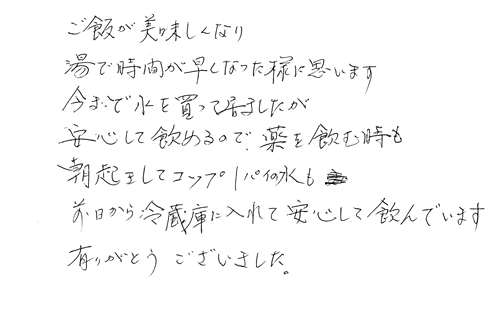 ご飯が美味しくなり
湯で時間が早くなった様に思います
今まで水を買って居ましたが
安心して飲めるので、薬を飲む時も
朝起をしてコップ1パイの水も
前日から冷蔵庫に入れて安心して飲んでいます
有りがとうございました。